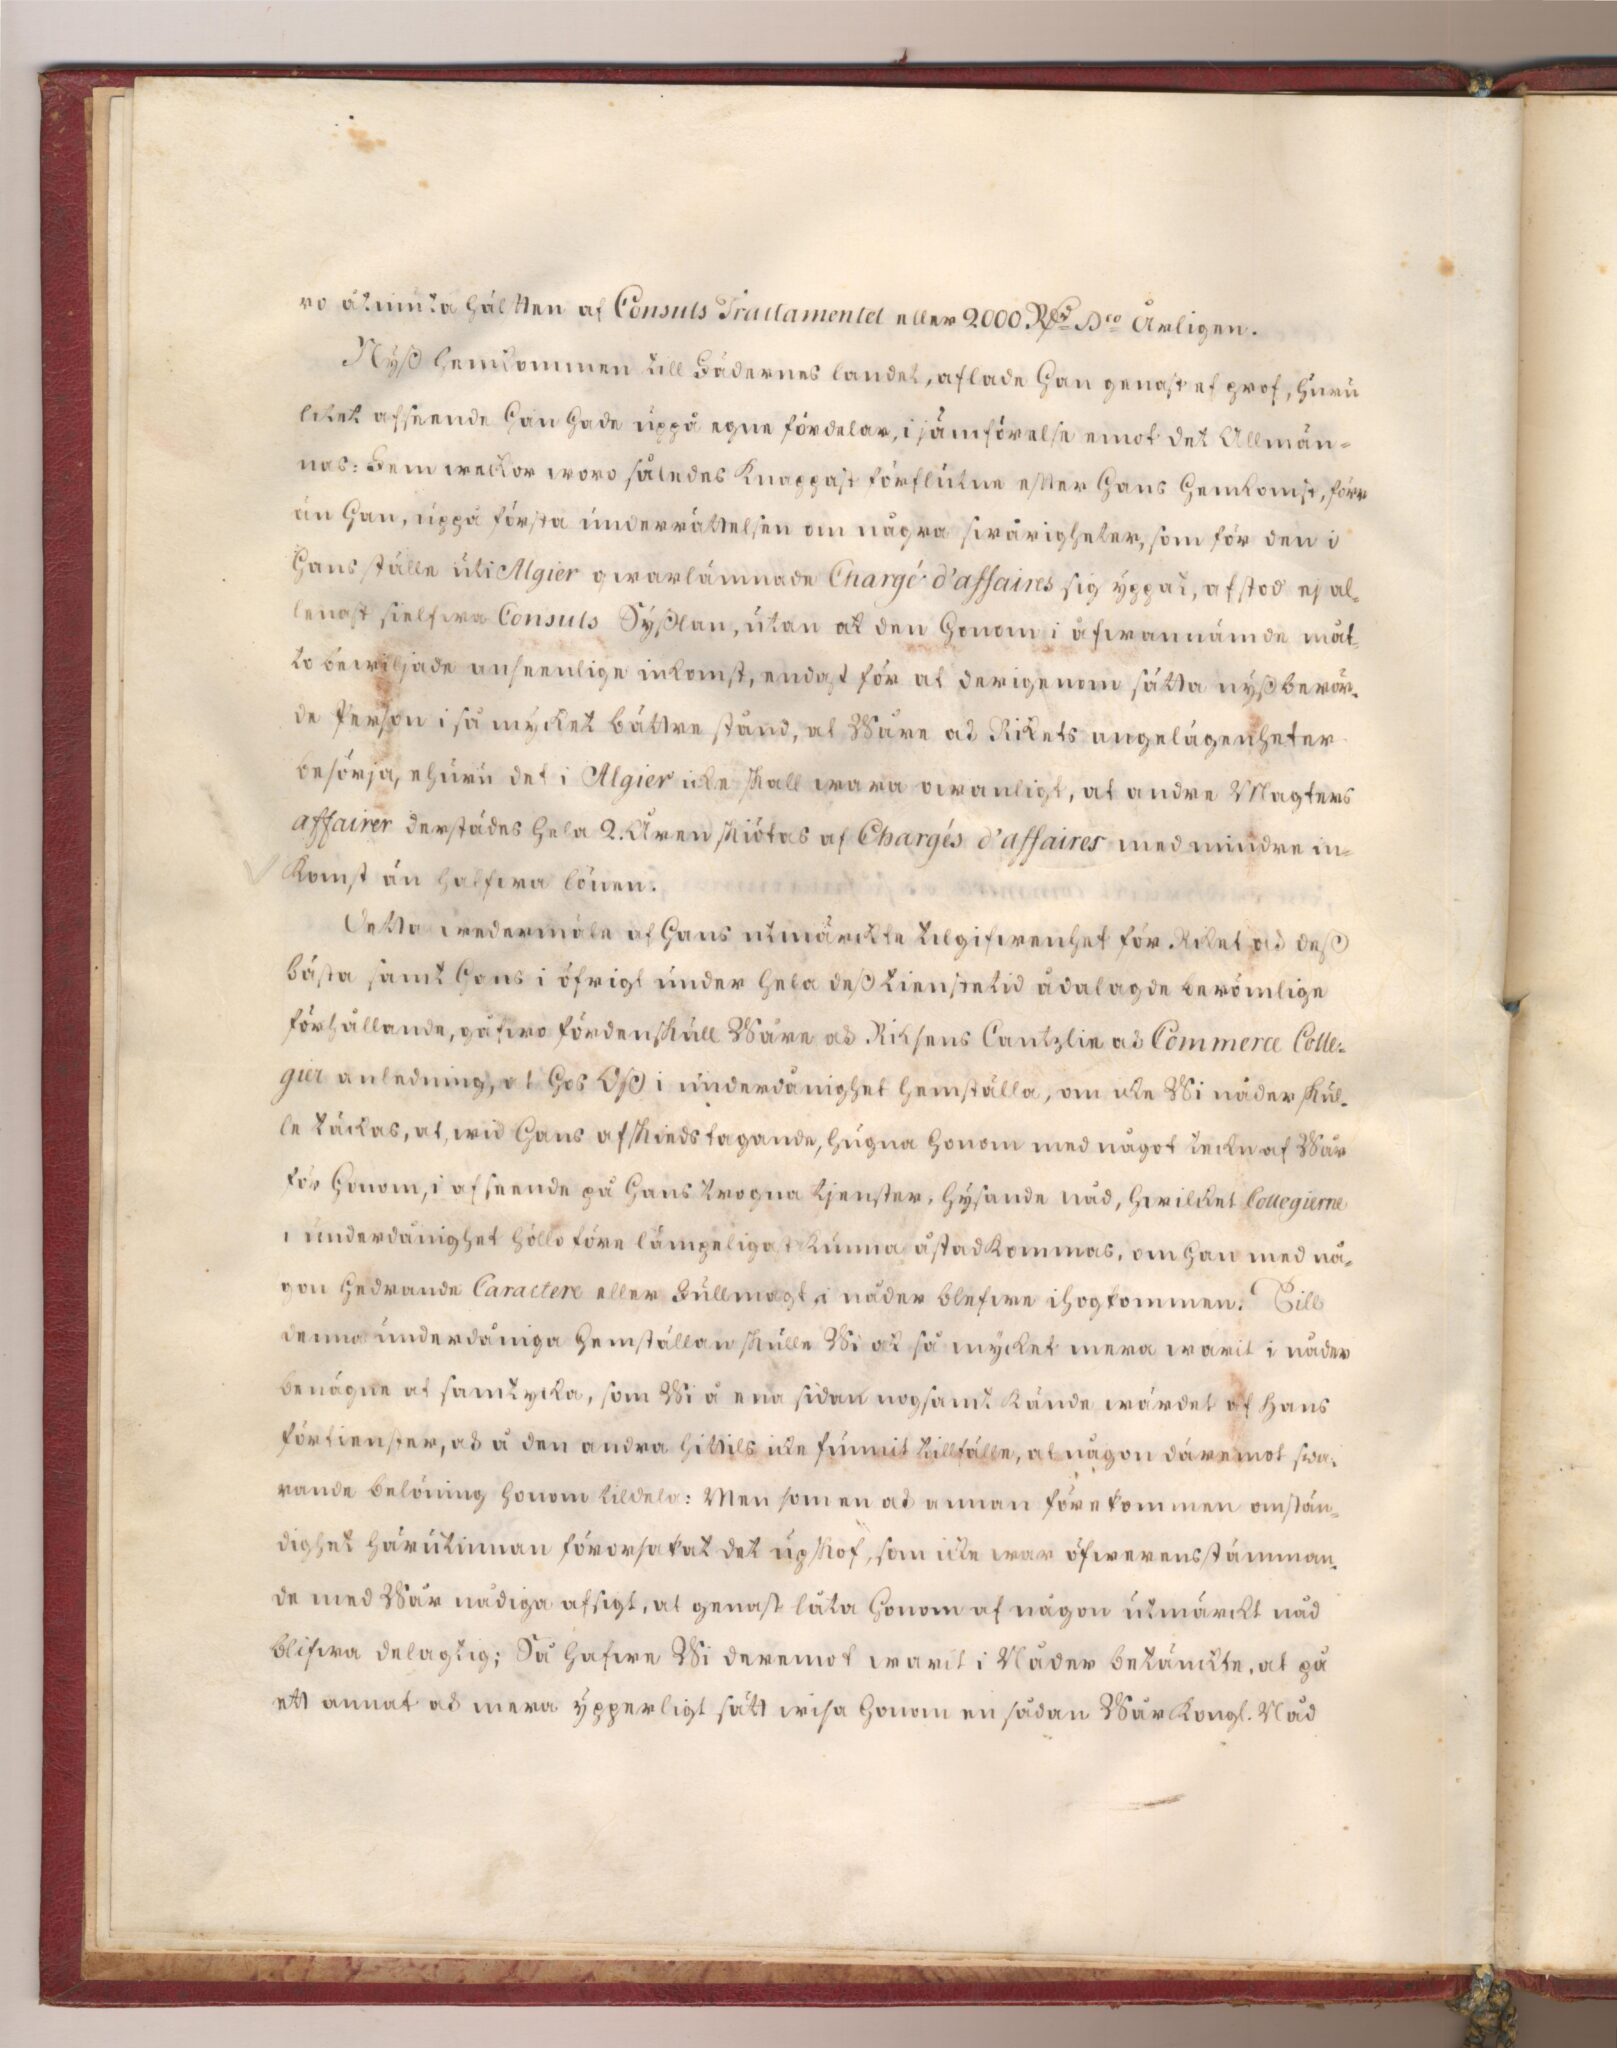 ro åtniuta hälften af Consuls Tractamentet eller 2000 Rdr Dco Årligen.
Nyß hemkommen till Fädernes landet, aflade Han genast ef prof, huru
litet afseende Han hade uppå egne fördelar, i jämförelse emot det Allmän-
nas: Fem weckor woro således knappast förflutne efter Hans Hemkomst, förr
än Han, uppå första underrättelsen om några swårigheter, som för den i
Hans ställe uti Algier qwarlämnade Chargé d'affaires sig yppat, afstod ej al-
lenast sielfwa Consuls Syßlan, utan ock den Honom i åfwannämde måt-
to bewiljade anseenlige inkomst, endast för at derigenom sätta nyßberör-
de Person i så mycket bättre stånd, at Wåre och Rikets angelägenheter
besörja, ehuru det i Algier icke skall wara owanligt, at andre Magters
affairer derstädes hela 2. Åren skiötas af Chargés d'affaires med mindre in-
komst än halfwa lönen.
Detta wedermäle af Hans utmärckte tilgifwenhet för Riket och deß
bästa samt Hans i öfrigt under hela deß tienstetid ådalagde berömlige
förhållande, gåfwo fördenskull Wåre och Riksens Cantzlie och Commerce Colle-
gier anledning, at Hos Oß i underdånighet hemställa, om icke Wi i nåder skul-
le täckas, at, wid Hans afskiedstagande, hugna Honom med något teckn af Wår
för Honom, i afseende på Hans trogna tjenster, hysande nåd, hwilcket Collegierne
i underdånighet höllo före lämpeligast kunna åstadkommas, om Han med nå-
gon hedrande Caractere eller Fullmagt i nåder blefwe ihogkommen. Till
denna underdåniga hemställan skulle Wi ock så mycket mera warit i nåder
benägne at samtycka, som Wi å ena sidan nogsamt kände wärdet af Hans
förtienster, och å den andra hittils icke funnit tillfälle, at någon däremot swa-
rande belöning Honom tildela: Men som en och annan förekommen omstän-
dighet härutinnan förorsakat det upskof, som icke war öfwerensstämman-
de med Wår nådiga afsigt, at genast låta Honom af någon utmärckt nåd
blifwa delagtig; Så hafwe Wi deremot warit i Nåder betänckte, at på
ett annat och mera ypperligt sätt wisa Honom en sådan Wår Kongl. Nåd